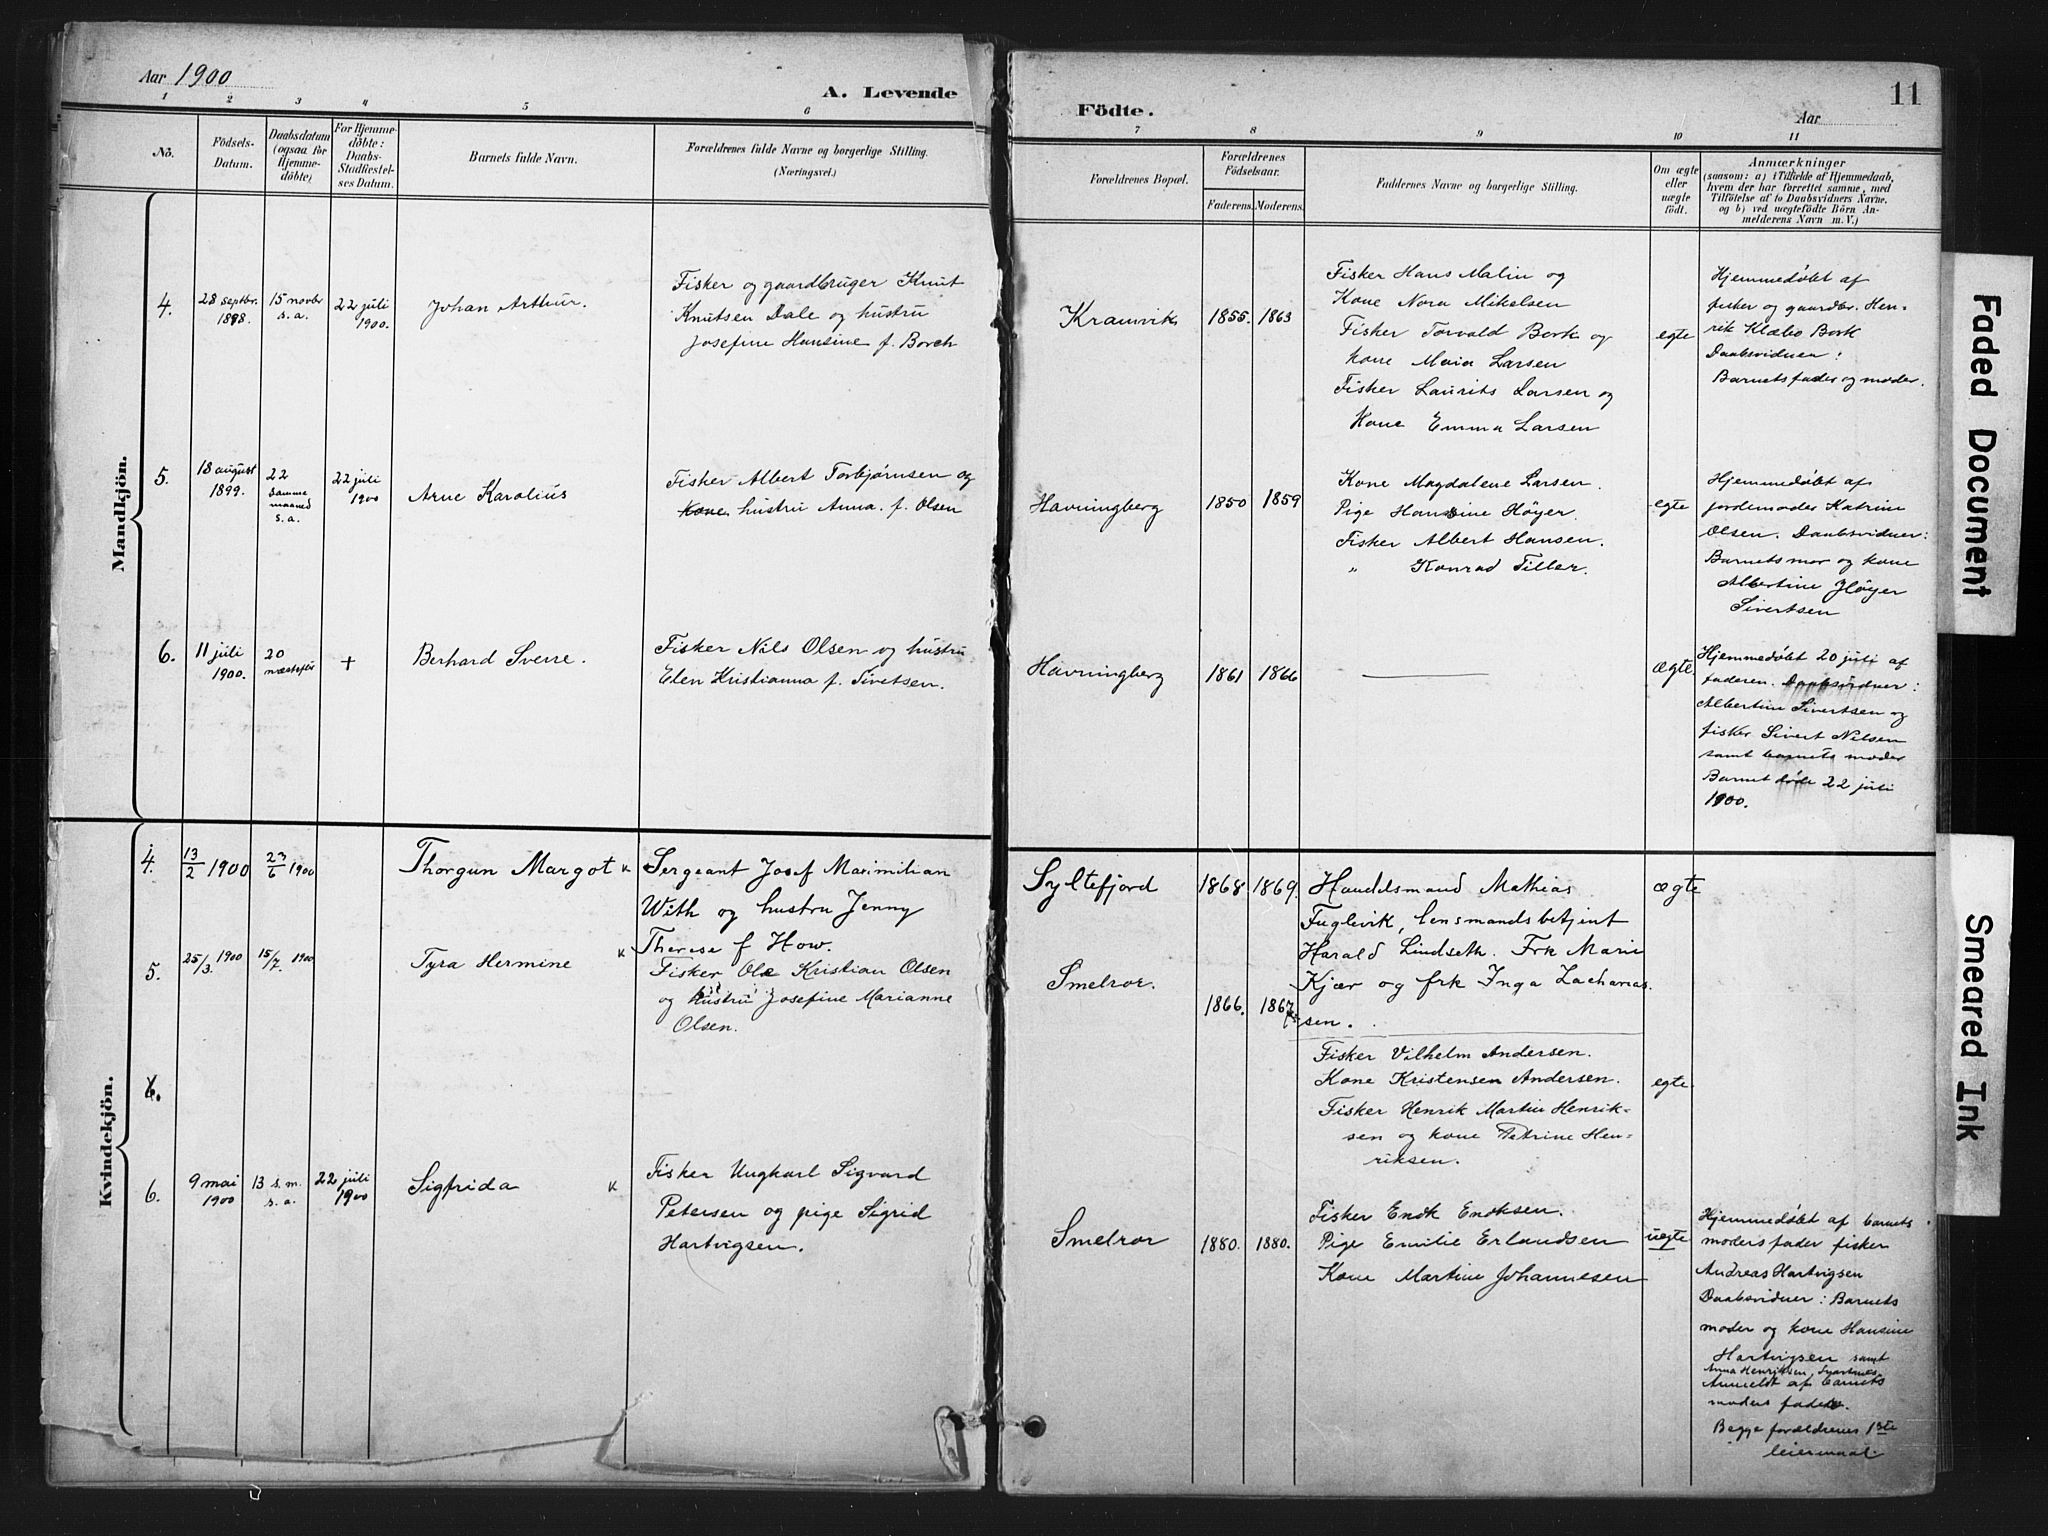 Aar 1900
A. Levende
1 2 3 4 5 6
No.
Födsels-
Datum.
Daabsdatum
(ogsaa for
Hjemme-
döbte)
For Hjemme-
döbte:
Daabs-
Stadfæstel-
ses Datum.
Barnets fulde Navn.
Forældrenes fulde Navne og borgerlige Stilling.
(Næringsvei.)
Mandkjön.
4.
28 septbr.
1898.
15 novbr
s. a.
22 juli
1900.
Johan Arthur.
Fisker og gaardbruger Knut
Knutsen Dale og hustru
Josefine Hansine f. Borch
5.
18 august
1899.
22
samme
maaned
s. a.
22 juli
1900
Arne Karolius
Fisker Albert Torbjørnsen og
Kone hustru Anna. f. Olsen
6.
11 juli
1900.
20
næstefter
+
Berhard Sverre.
Fisker Nils Olsen og hustru
Elen Kristianna f. Sivetsen.
Kvindekjön.
4.
13/2 1900
23/6 1900
Thorgun Margot
Sergeant Josef Maximilian
With og hustru Jenny
Therese f How.
5.
25/3. 1900
15/7. 1900
Tyra Hermine
Fisker Ole Kristian Olsen
og hustru Josefine Marianne
Olsen.
6.
6.
9 mai
1900
13 s. m.
s. a.
22 juli
1900
Sigfrida
Fisker Ungkarl Sigvard
Petersen og pige Sigrid
Hartvigsen.
Födte.
11
Aar
7 8 9 10 11
Forældrenes Bopæl.
Forældrenes
Födselsaar.
Faderens. Moderens.
Faddernes Navne og borgerlige Stilling.
Om ægte
eller
uægte
födt.
Anmærkninger
(saasom: a) i Tilfælde af Hjemmedaab,
hvem der har forrettet samme, med
Tilföielse af to Daabsvidners Navne,
og b) ved uægtefödte Börn An-
melderens Navn m. V.)
Kramvik
1855. 1863
Fisker Hans Malin og
Kone Nora Mikelsen
Fisker Torvald Bork og
kone Maia Larsen
Fisker Laurits Larsen og
Kone Emma Larsen
egte
Hjemmedøbt af
fisker og gaardbr. Hen-
rik Klæbo Bork
Daabsvidner:
Barnets fader og moder.
Havningberg
1850 1859
Kone Magdalene Larsen.
Pige Hansine Høyer.
Fisker Albert Hansen.
" Konrad Tiller.
egte
Hjemmedøbt af
jordemoder Katrine
Olsen. Daabsvidner:
Barnets mor og kone
Albertine Høyer
Sivertsen
Havningberg
1861 1866
ægte
Hjemmedøbt 20 juli af
faderen. Daabsvidner:
Albertine Sivertsen og
fisker Sivert Nilsen
samt barnets moder
Barnet døde 22 juli
1900.
Syltefjord
1868 1869.
Handelsmand Mathias
Fuglevik, lensmandsbetjent
Harald Lindseth. Frk Marie
Kjær og frk Inga Zacharias
sen.
ægte
Smelror.
1866. 1867
Fisker Vilhelm Andersen.
Kone Kristensen Andersen.
Fisker Henrik Martin Henrik-
sen og kone Petrine Hen-
riksen.
egte.
Smelror
1880. 1880.
Fisker Enok Enoksen.
Pige Emilie Erlandsen
Kone Martine Johannesen
uægte
Hjemmedøbt af barnets
moders fader fisker
Andreas Hartvigsen
Daabsvidner: Barnets
moder og kone Hansine
Hartvigsen samt
Anna Henriksen, Svartnes
Anmeldt af barnets
moders fader.
Begge forældrenes 1ste
leiermaal.
Faded Document
Smeared Ink